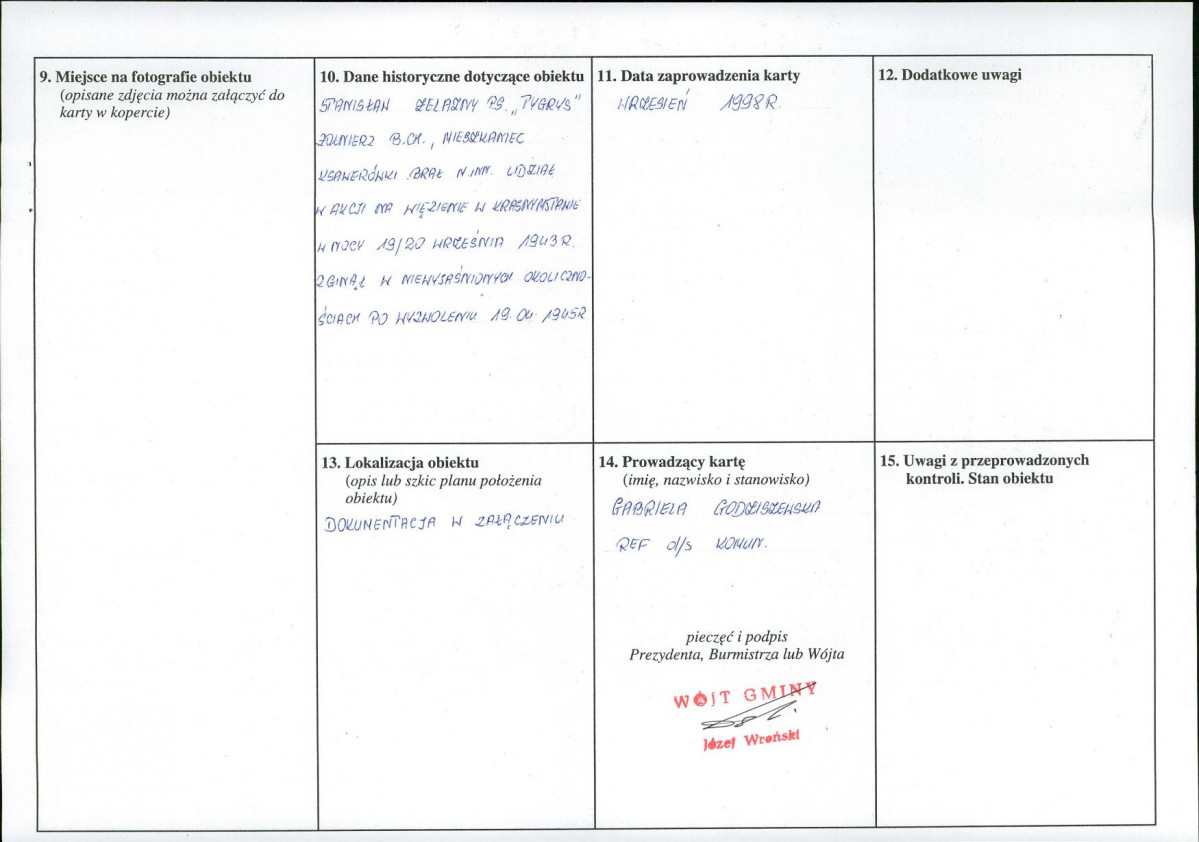 9. Miejsce na fotografie obiektu
(opisane zdjęcia można załączyć do
karty w kopercie)
10. Dane historyczne dotyczące obiektu
STANISŁAW ŻELAZNY PS. „TYGRYS"
ŻOŁNIERZ B.CH., MIESZKANIEC
KSAWERÓWKI. BRAŁ M.INN. UDZIAŁ
W AKCJI NA WIĘZIENIE W KRASNYMSTAWIE
W NOCY 19/20 WRZEŚNIA 1943 R.
ZGINĄŁ W NIEWYJAŚNIONYCH OKOLICZNO-
ŚCIACH PO WYZWOLENIU 19.04.1945R
11. Data zaprowadzenia karty
WRZESIEŃ 1998R.
12. Dodatkowe uwagi
13. Lokalizacja obiektu
(opis lub szkic planu położenia
obiektu)
DOKUMENTACJA W ZAŁĄCZENIU
14. Prowadzący kartę
(imię, nazwisko i stanowisko)
GABRIELA GODZISZEWSKA
REF d/s KOMUN.
pieczęć i podpis
Prezydenta, Burmistrza lub Wójta
WÓJT GMINY
Józef Wroński
15. Uwagi z przeprowadzonych
kontroli. Stan obiektu